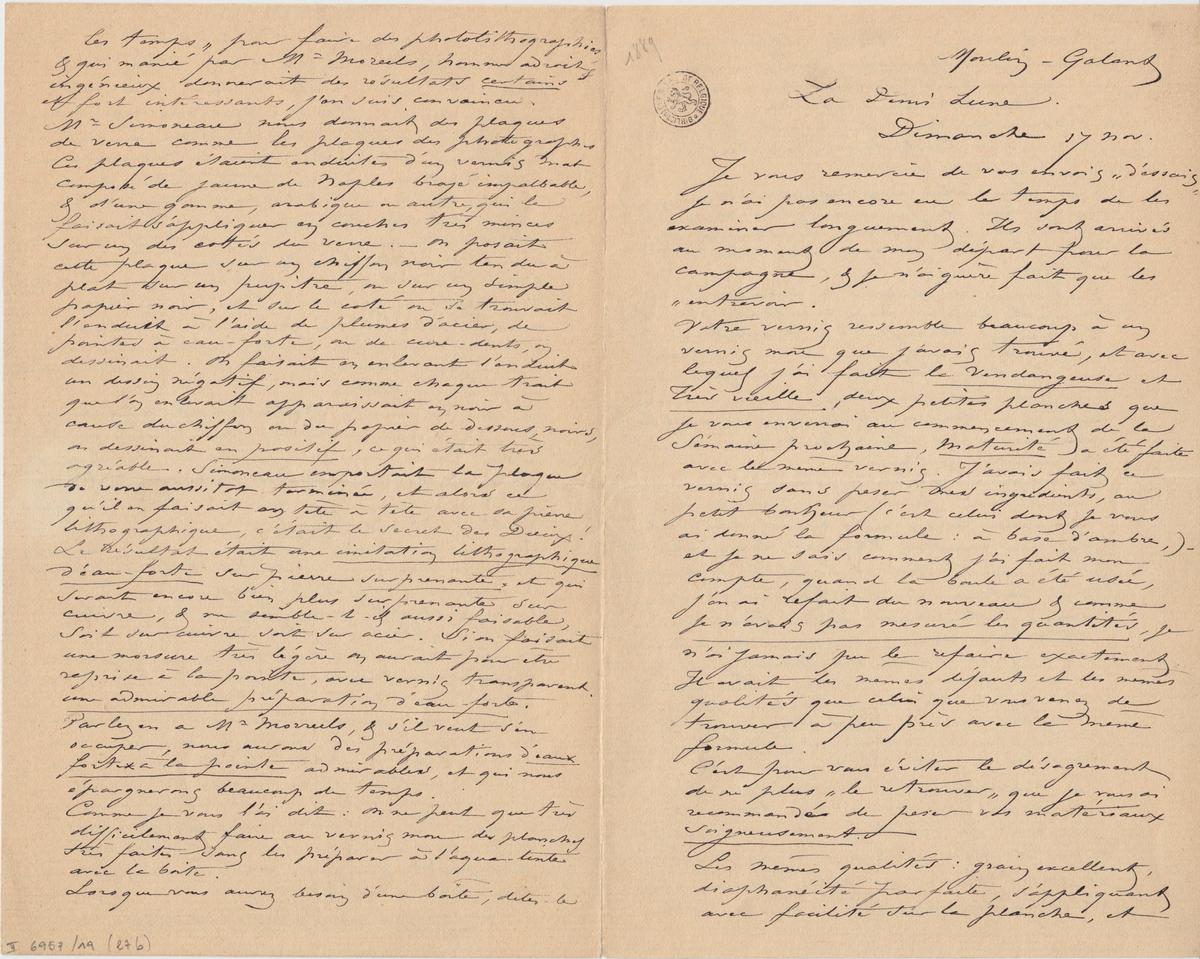 les temps „ pour faire des photolithographies
& qui manié par Mr Moreels, homme adroit &
ingénieux donnerait des résultats certains
et fort intéressants, j'en suis convaincu.
Mr Simoneau nous donnait des plaques
de verre comme les plaques des photographes
Ces plaques étaient enduites d'un vernis mat
composé de jaune de Naples broyé impalpable,
& d'une gomme, arabique ou autre, qui le
faisait s'appliquer en couches très minces
sur un des cotés du verre. — On posait
cette plaque sur un chiffon noir tendu à
plat sur un pupitre, ou sur un simple
papier noir, et sur le coté où se trouvait
l'enduit à l'aide de plumes d'acier, de
pointes à eau-forte, ou de cure-dents, on
dessinait. On faisait en enlevant l'enduit
un dessin négatif, mais comme chaque trait
que l'on enlevait apparaissait en noir à
cause du chiffon ou du papier de dessous, noirs,
on dessinait en positif, ce qui était très
agréable. Simoneau emportait la plaque
de verre aussitot terminée, et alors ce
qu'il en faisait en tête à tête avec sa pierre
lithographique, c'était le secret des Dieux!
Le Résultat était une imitation lithographique
d'eau-forte sur pierre surprenante, et qui
serait encore bien plus surprenante sur
cuivre, & me semble-t-il aussi faisable,
soit sur cuivre soit sur acier. Si on faisait
une morsure très légère on aurait peut être
reprise à la pointe, avec vernis transparent
une admirable préparation d'eau forte.
Parlez en a Mr Morreels, & s'il veut s'en
occuper, nous aurons des préparations d'eaux
fortes à la pointe admirables, et qui nous
épargnerons beaucoup de temps.
Comme je vous l'ai dit: on ne peut que très
difficilement faire au vernis mou des planches
très faites sans les préparer à l'aqua-tinte
avec la boîte.
Lorsque vous aurez besoin d'une boîte, dites-le
II 6957/19 (27b)
1889
Moulin-Galant
La Demi Lune.
Dimanche 17 nov.
Je vous remercie de vos envois „d'essais„
Je n'ai pas encore eu le temps de les
examiner longuement. Ils sont arrivés
au moment de mon départ pour la
campagne, & je n'ai guère fait que les
„entrevoir.
Votre vernis ressemble beaucoup à un
vernis mou que j'avais trouvé, et avec
lequel j'ai fait la Vendangeuse et
Très vieille, deux petites planches que
je vous enverrai au commencement de la
Semaine prochaine, Maturité) a été faite
avec le même vernis. J'avais fait ce
vernis sans peser mes ingrédients, au
petit bonheur (c'est celui dont je vous
ai donné la formule: à base d'ambre,)-
et je ne sais comment j'ai fait mon
compte, quand la boule a été usée,
j'en ai refait du nouveau & comme
je n'avais pas mesuré les quantités, je
n'ai jamais pu le refaire exactement
Il avait les mêmes défauts et les mêmes
qualités que celui que vous venez de
trouver à peu près avec la même
formule.
C'est pour vous éviter le désagrément
de ne plus „le retrouver„ que je vous ai
recommandé de peser vos matériaux
soigneusement.
Les mêmes qualités: grain excellent,
diaphanéité parfaite, s'appliquant
avec facilité sur la planche, et